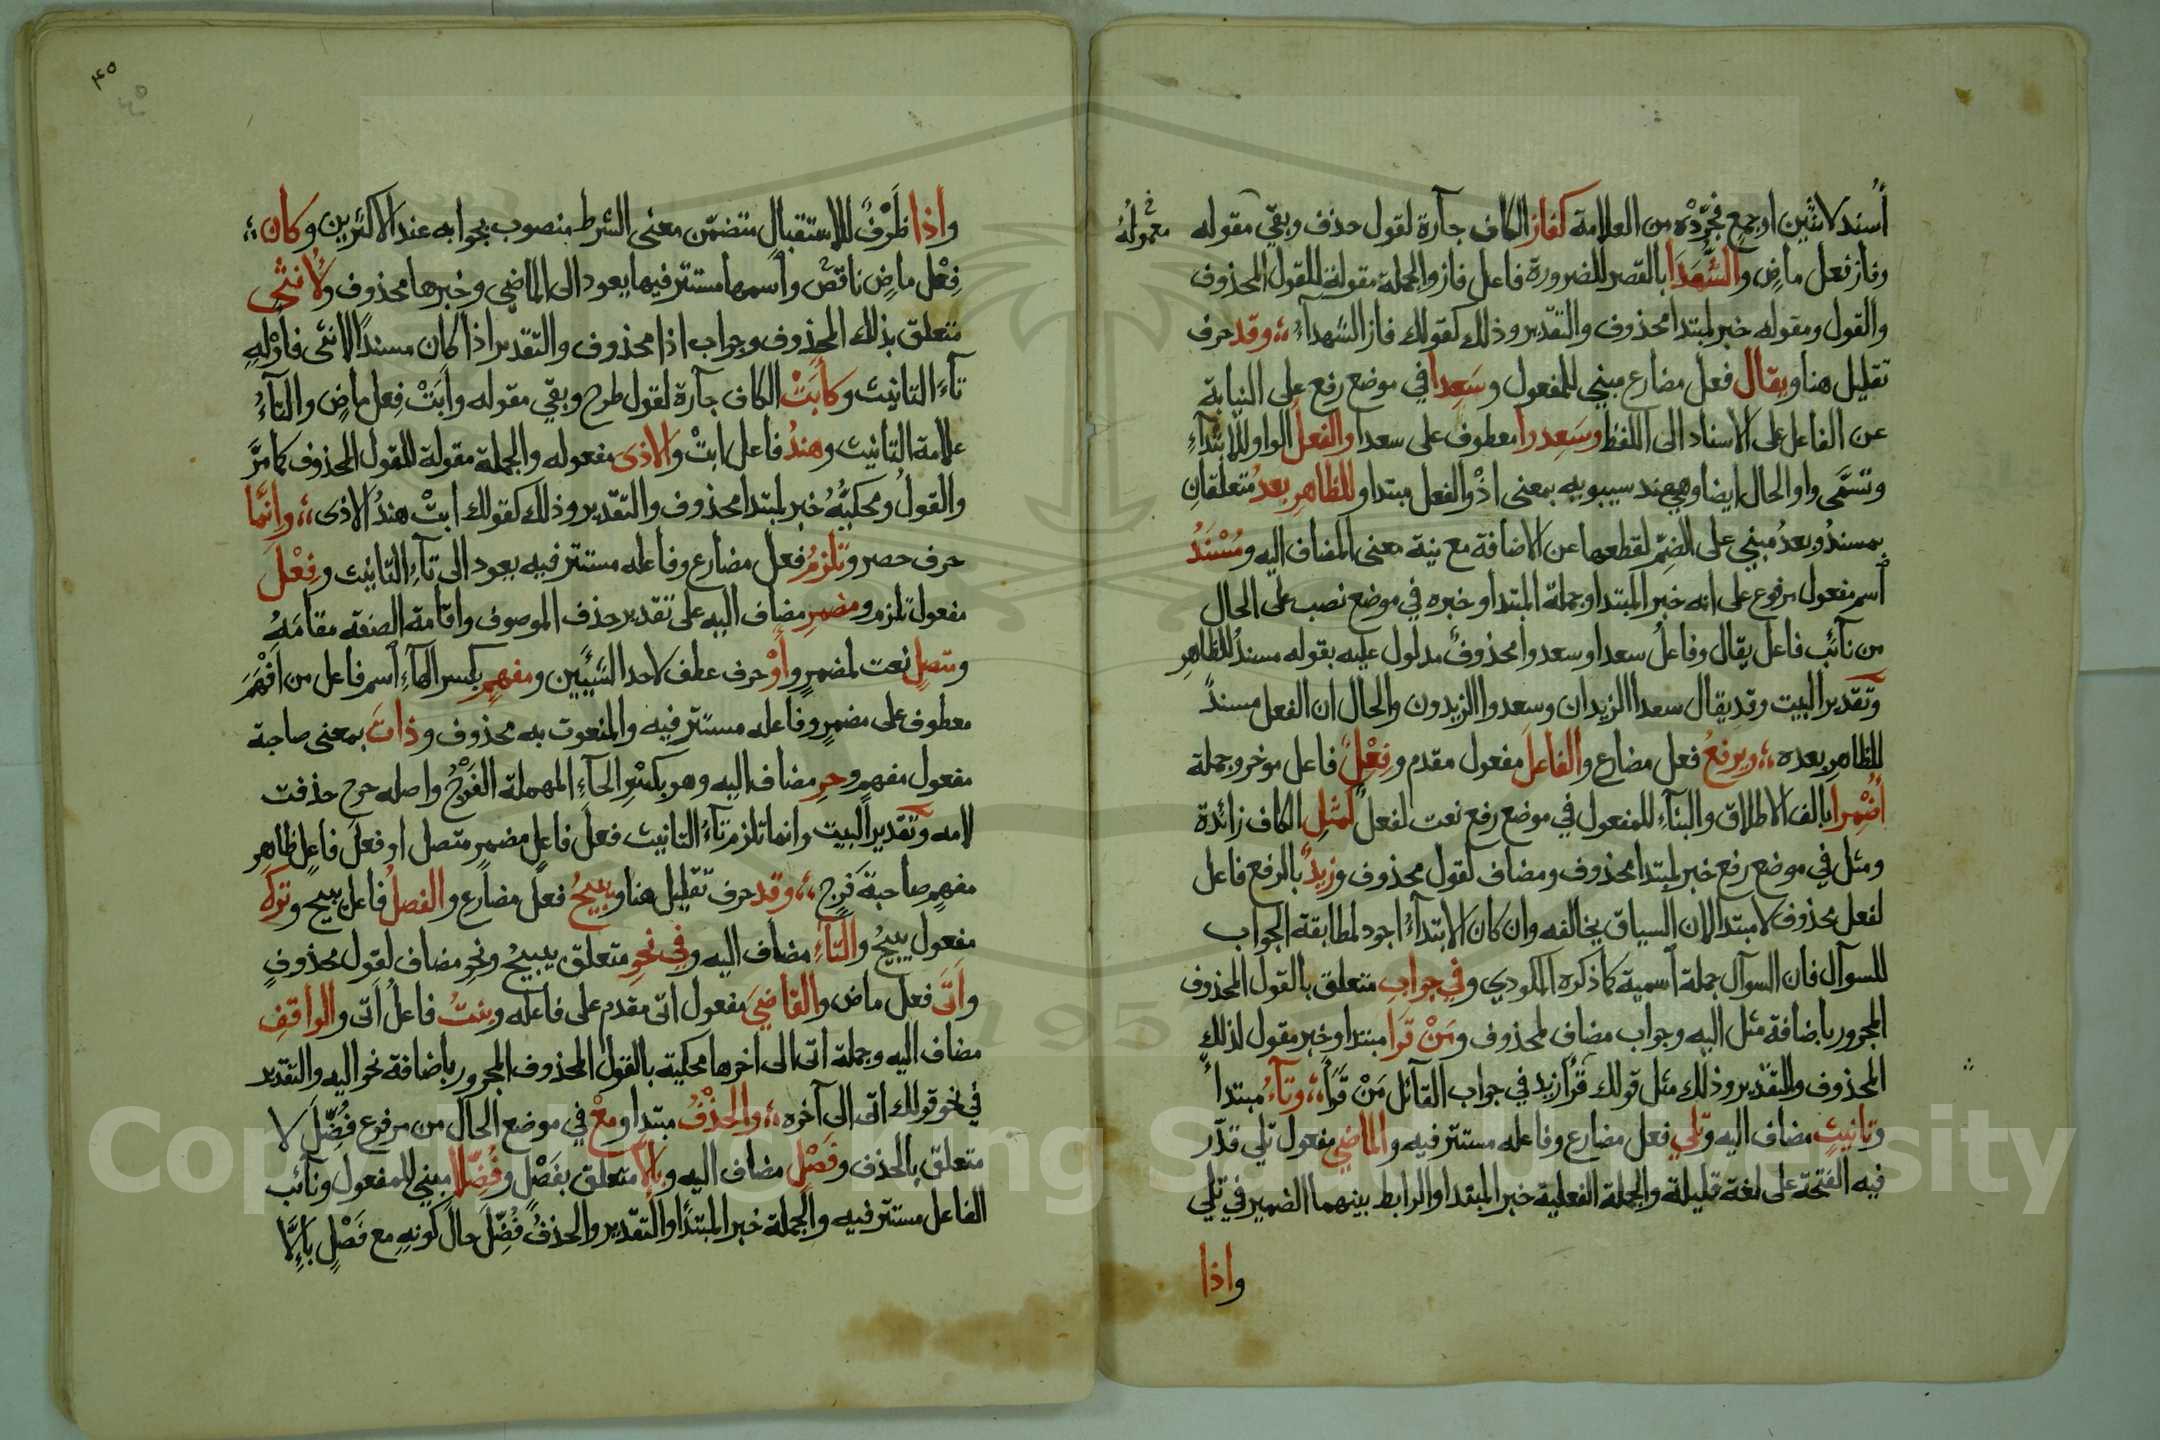 أُسند لاثنين او جمع فجرّده من العلامة كفاز الكاف جآرة لقول حذف وبقي مقوله
معموله
وفاز فعل ماضٍ والشُّهَدَا بالقصر للضرورة فاعل فاز والجملة مقولة للقول المحذوف
والقول ومقوله خبر لمبتدا محذوف والتقدير وذلك كقولك فاز الشهدآءُ ،، وقد حرف
تقليل هنا ويقال فعل مضارع مبني للمفعول وسَعِدا في موضع رفع على النيابة
عن الفاعل على الاسناد الى اللفظ وسَعِدوا معطوف على سعدا والفعل الواو للابتدآءِ
وتسمَّى واو الحال ايضا وهي عند سيبويه بمعنى اذْ والفعل مبتدا وللظاهرِ بعدُ متعلقانِ
بمسندُ وبعدُ مبني على الضمِّ لقطعها عن الاضافة مع نية معنى المضاف اليه ومُسْنَدُ
اسم مفعول مرفوع على انه خبر المبتدا وجملة المبتدا وخبره في موضع نصب على الحال
من نآئب فاعل يقال وفاعلُ سعدا وسعدوا محذوفٌ مدلول عليه بقوله مسندُ للظاهرِ
وتقدير البيت وقد يقال سعدا الزيدان وسعدوا الزيدون والحال ان الفعل مسندٌ
للظاهر بعده ،، ويرفعُ فعل مضارع والفاعلَ مفعول مقدم وفِعْلٌ فاعل موخر وجملة
أُضْمِرا بالف الاطلاق والبنآءِ للمفعول في موضع رفع نعت لفعل كمثلِ الكاف زائدة
ومثل في موضع رفع خبر لمبتدا محذوف ومضاف لقول محذوف وزيدٌ بالرفع فاعل
لفعل محذوف لا مبتدا لان السياق يخالفه وان كان الابتدآءُ اجود لمطابقة الجواب
للسوآل فان السوآل جملة اسمية كما ذكره المكودي وفي جوابِ متعلق بالقول المحذوف
المجرور باضافة مثل اليه وجواب مضاف لمحذوف ومَنْ قَرَا مبتدا وخبر مقول لذلك
المحذوف والتقدير وذلك مثل قولك قَرَأَ زيد في جواب القآئل مَنْ قَرَأَ ،، وتآءُ مبتدأ
وتانيثٍ مضاف اليه وتلي فعل مضارع وفاعله مستتر فيه والماضي مفعول تلي قدّر
فيه الفتحة على لغة قليلة والجملة الفعلية خبر المبتدا والرابط بينهما الضمير في تلي
واذا
٤٥
٤٥
واذا ظَرْفٌ للاستقبال متضمّن معنى الشرط منصوب بجوابه عند الاكثرين وكان ،،
فِعْل ماضٍ ناقص واسمها مستتر فيها يعود الى الماضي وخبرها محذوف ولأُنثى
متعلق بذلك المحذوف وجواب اذا محذوف والتقدير اذا كان مسندًا لانثى فاوْلِهِ
تآءَ التانيث وكأَبَتْ الكاف جآرة لقول طرح وبقي مقوله وأبَتْ فِعل ماضٍ والتآءُ
علامة التانيث وهندُ فاعل ابتْ والاذى مفعوله والجملة مقولة للقول المحذوف كما مرَّ
والقولُ ومحكيُّهُ خبر لمبتدا محذوف والتقدير وذلك كقولك ابتْ هندُ الاذى ،، وانّما
حرف حصر وتلزمُ فعل مضارع وفاعله مستتر فيه يعود الى تآءِ التانيث وفِعْلَ
مفعول تلزم ومضمرٍ مضاف اليه على تقدير حذف الموصوف واقامة الصفة مقامَهُ
ومتصلٍ نعت لمضمرٍ وأَوْ حرف عطف لاحد الشيئين ومفهمٍ بكسر الهآءِ اسم فاعل من افْهَمَ
معطوف على مضمرٍ وفاعله مستتر فيه والمنعوت به محذوف وذاتَ بمعنى صاحبة
مفعول مفهمٍ وحِرِ مضاف اليه وهو بكسْرِ الحآءِ المهملة الفَرْجُ واصله حرح حذفت
لامه وتقدير البيت وانما تلزم تآءُ التانيث فعلَ فاعلٍ مضمرٍ متصل او فعلَ فاعلٍ ظاهرٍ
مفهمٍ صاحبةَ فَرْجٍ ،، وقد حرف تقليل هنا ويبيحُ فعل مضارع والفصلُ فاعل يبيح وتركَ
مفعول يبيحُ والتآءِ مضاف اليه وفي نحوِ متعلق بيبيحُ ونحوِ مضاف لقول محذوفٍ
واَتَى فعل ماض والقاضيَ مفعول اتى مقدم على فاعله وبنتُ فاعلُ اَتى والواقفِ
مضاف اليه وجملة اتى الى اخرها محكية بالقول المحذوف المجرور باضافة نحو اليه والتقدير
في نحو قولك اتى الى آخره ،، والحذْفُ مبتدا ومعْ في موضع الحال من مرفوع فُضِّلَ لا
متعلق بالحذف وفَصْلٍ مضاف اليه وبالَّا متعلق بفَصْلٍ وفُضِّلا مبني للمفعول ونآئب
الفاعل مستتر فيه والجملة خبر المبتدا والتقدير والحذف فُضِّلَ حالَ كونهِ مع فَصْلٍ باِلّا